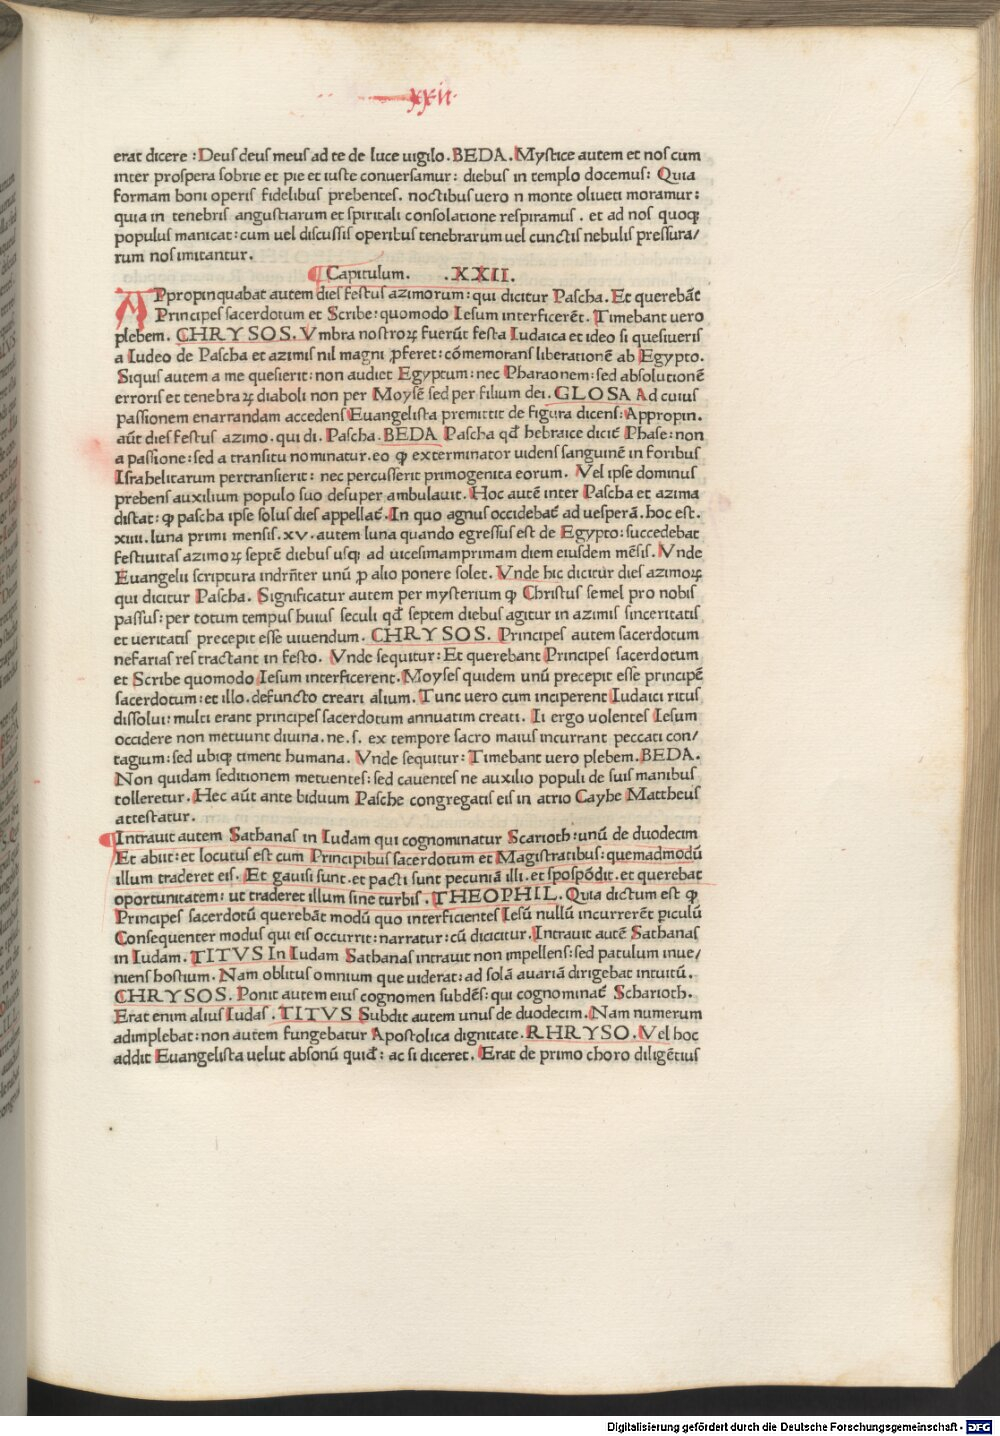 xxii.
erat dicere : Deus deus meus ad te de luce uigilo . BEDA . Mystice autem et nos cum
inter prospera sobrie et pie et iuste conuersamur : diebus in templo docemus : Quia
formam boni operis fidelibus prebentes . noctibus uero n monte oliueti moramur :
quia in tenebris angustiarum et spiritali consolatione respiramus . et ad nos quoqꝫ
populus manicat : cum uel discussis operibus tenebrarum uel cunctis nebulis pressura/
rum nos imitantur .
Capitulum . .XXII.
APpropinquabat autem dies festus azimorum : qui dicitur Pascha . Et querebāt
Principes sacerdotum et Scribe : quomodo Iesum interficerēt . Timebant uero
plebem . CHRYSOS . Vmbra nostroꝝ fuerūt festa Iudaica et ideo si quesiueris
a Iudeo de Pascha et azimis nil magni ꝓferet : cōmemorans liberationē ab Egypto .
Siquis autem a me quesierit : non audiet Egyptum : nec Pharaonem : sed absolutionē
erroris et tenebraꝝ diaboli non per Moysē sed per filium dei . GLOSA Ad cuius
passionem enarrandam accedens Euangelista premittit de figura dicens : Appropin .
aūt dies festus azimo . qui di . Pascha . BEDA Pascha qđ hebraice dicit̄ Phase : non
a passione : sed a transitu nominatur . eo ꝙ exterminator uidens sanguinē in foribus
Israhelitarum pertransierit : nec percusserit primogenita eorum . Vel ipse dominus
prebens auxilium populo suo desuper ambulauit . Hoc autē inter Pascha et azima
distat : ꝙ pascha ipse solus dies appellat̄ . In quo agnus occidebat̄ ad uesperā . hoc est .
xiiii . luna primi mensis . xv . autem luna quando egressus est de Egypto : succedebat
festiuitas azimoꝝ septē diebus usqꝫ ad uicesimamprimam diem eiusdem mēsis . Vnde
Euangelii scriptura indrn̄ter unū ꝓ alio ponere solet . Vnde hic dicitur dies azimoꝝ
qui dicitur Pascha . Significatur autem per mysterium ꝙ Christus semel pro nobis
passus : per totum tempus huius seculi qđ septem diebus agitur in azimis sinceritatis
et ueritatis precepit esse uiuendum . CHRYSOS . Principes autem sacerdotum
nefarias res tractant in festo . Vnde sequitur : Et querebant Principes sacerdotum
et Scribe quomodo Iesum interficerent . Moyses quidem unū precepit esse principē
sacerdotum : et illo . defuncto creari alium . Tunc uero cum inciperent Iudaici ritus
dissolui : multi erant principes sacerdotum annuatim creati . Ii ergo uolentes Iesum
occidere non metuunt diuina . ne . s . ex tempore sacro maius incurrant peccati con/
tagium : sed ubiqꝫ timent humana . Vnde sequitur : Timebant uero plebem . BEDA .
Non quidam seditionem metuentes : sed cauentes ne auxilio populi de suis manibus
tolleretur . Hec aūt ante biduum Pasche congregatis eis in atrio Cayhe Mattheus
attestatur .
Intrauit autem Sathanas in Iudam qui cognominatur Scarioth : unū de duodecim
Et abiit : et locutus est cum Principibus sacerdotum et Magistratibus : quemadmodū
illum traderet eis . Et gauisi sunt . et pacti sunt pecuniā illi . et spospōdit . et querebat
oportunitatem : ut traderet illum sine turbis . THEOPHIL . Quia dictum est ꝙ
Principes sacerdotū querebāt modū quo interficientes Iesū nullū incurrerēt ꝑiculū
Consequenter modus qui eis occurrit : narratur : cū dicicitur . Intrauit autē Sathanas
in Iudam . TITVS In Iudam Sathanas intrauit non impellens : sed patulum inue/
niens hostium . Nam oblitus omnium que uiderat : ad solā auariā dirigebat intuitū .
CHRYSOS . Ponit autem eius cognomen subdēs : qui cognominat̄ Scharioth .
Erat enim alius Iudas . TITVS Subdit autem unus de duodecim . Nam numerum
adimplebat : non autem fungebatur Apostolica dignitate . RHRYSO . Vel hoc
addit Euangelista uelut absonū quiđ : ac si diceret . Erat de primo choro diligētius
Digitalisierung gefördert durch die Deutsche Forschungsgemeinschaft - DFG